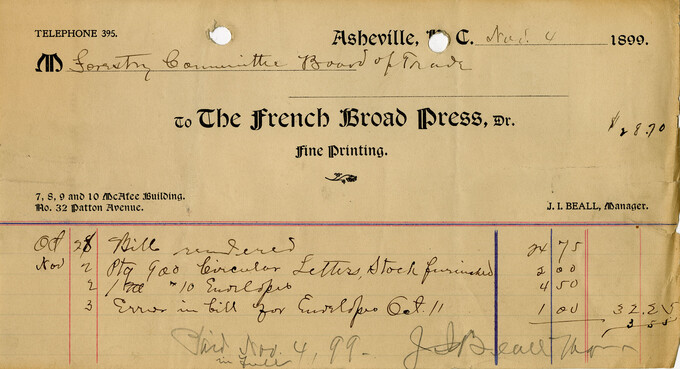 TELEPHONE 395.
Asheville, N. C. Nov. 4 1899.
M Forestry Committee Board of Trade
To The French Broad Press, Dr.
$28.70
Fine Printing.
7, 8, 9 and 10 McAfee Building.
No. 32 Patton Avenue.
J. I. BEALL, Manager.
Oct 28 Bill rendered 24 75
Nov 2 Ptg 900 Circular Letters, Stock furnished 2 00
2 " 10 Envelopes 4 50
3 Error in bill for Envelopes Oct. 11 1 00 32.25
3 55
Paid Nov. 4, 99. J I Beall
in full